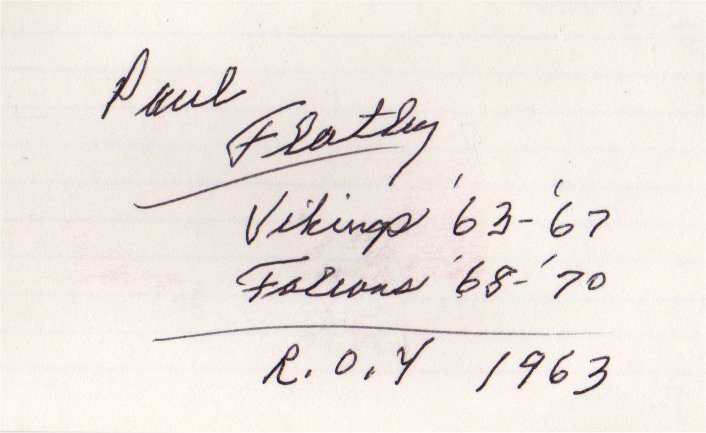 Paul
Flatley
Vikings '63-'67
Falcons '68-'70
R.O.Y 1963